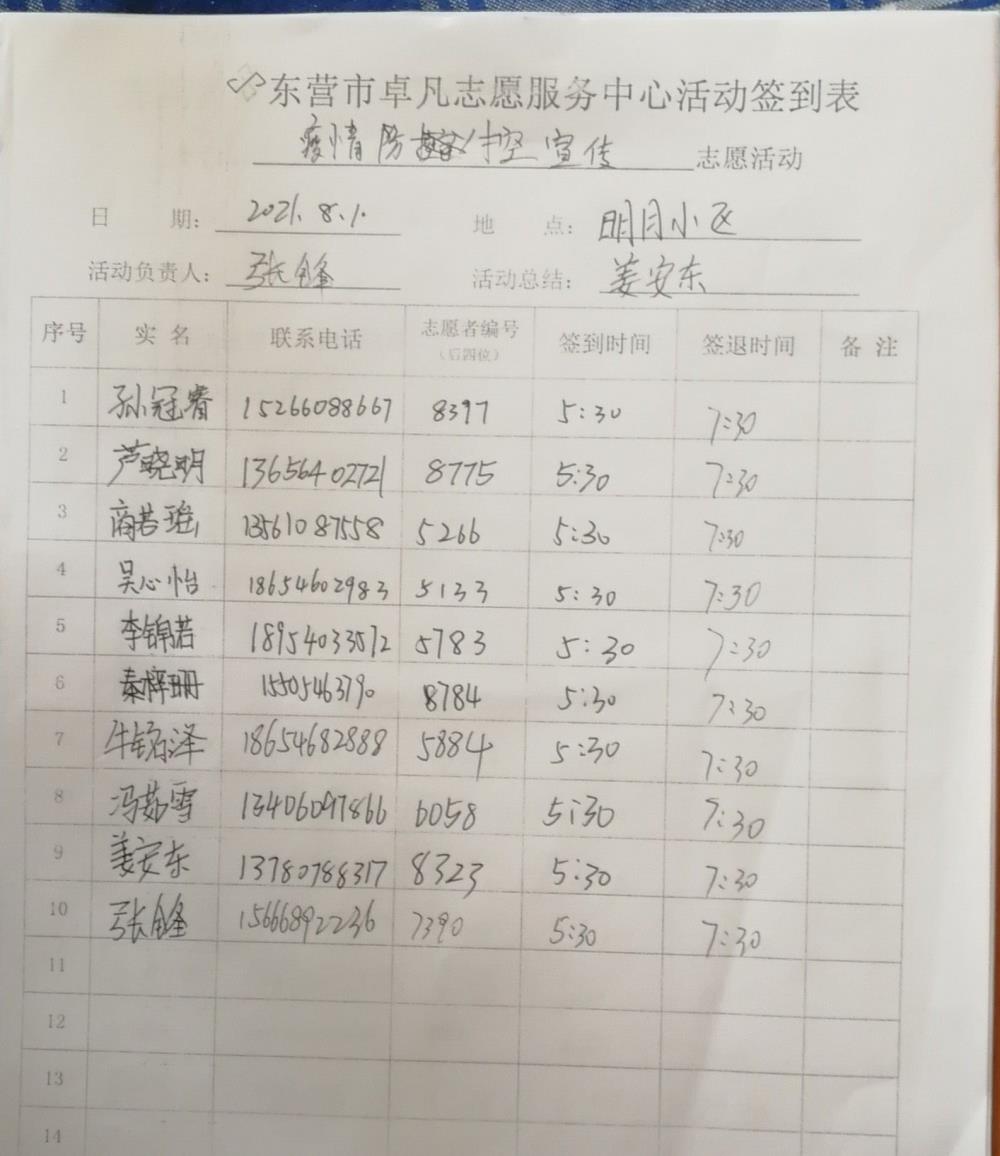 东营市卓凡志愿服务中心活动签到表
疫情防控宣传 志愿活动
日 期: 2021.8.1. 地 点: 明月小区
活动负责人: 张锋 活动总结: 姜安东
序号 实 名 联系电话 志愿者编号(后四位) 签到时间 签退时间 备 注
1 孙冠睿 15266088667 8397 5:30 7:30
2 芦晓明 13656402721 8775 5:30 7:30
3 商若瑶 13561087558 5266 5:30 7:30
4 吴心怡 18654602983 5133 5:30 7:30
5 李锦若 18954033572 5783 5:30 7:30
6 秦梓珊 15505463790 8784 5:30 7:30
7 牛铭泽 18654682888 5884 5:30 7:30
8 冯茹雪 13406097866 6058 5:30 7:30
9 姜安东 13780788317 8323 5:30 7:30
10 张锋 15666892236 7390 5:30 7:30
11
12
13
14